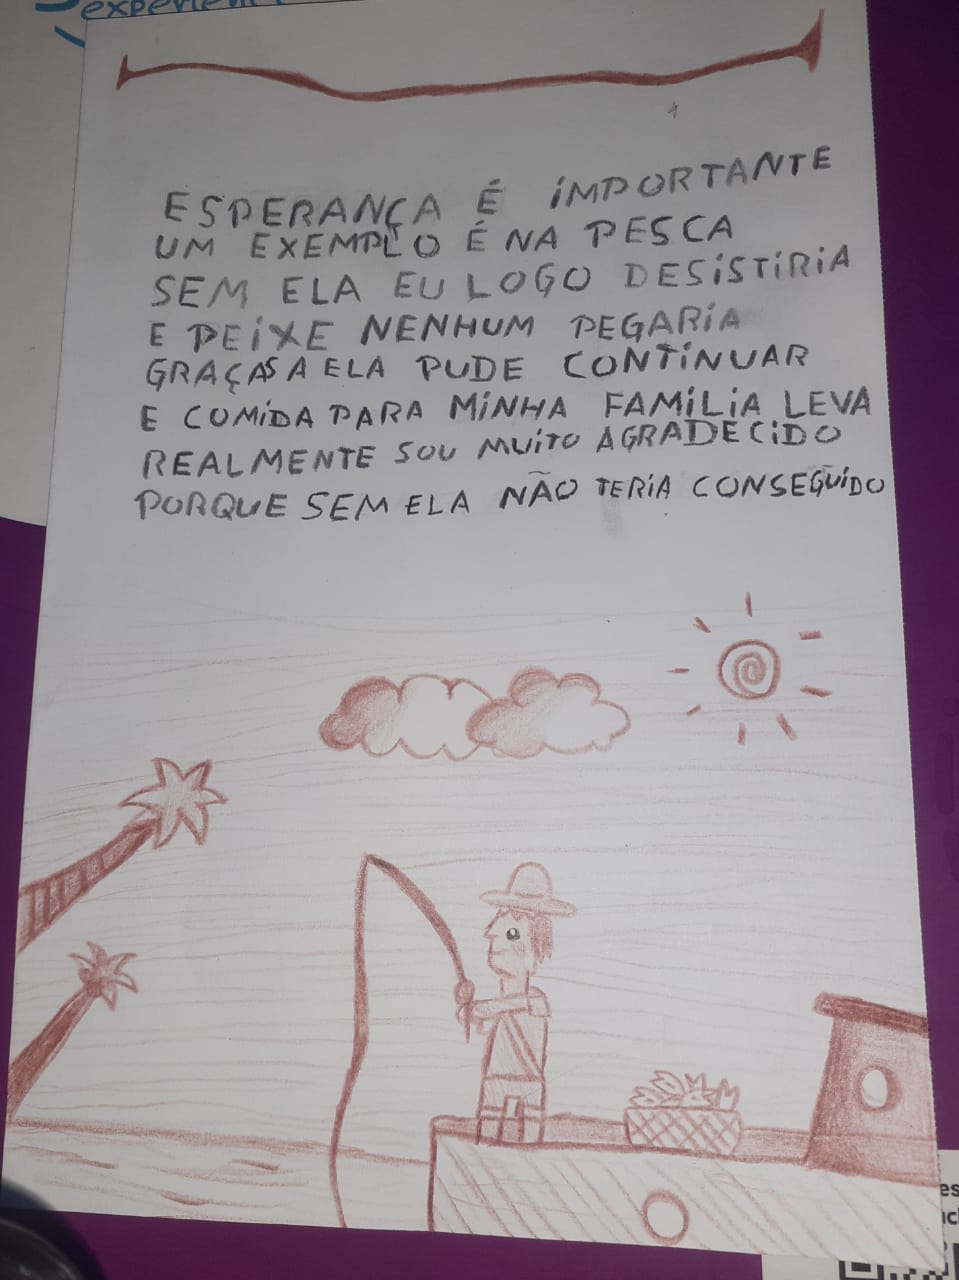 experien
ESPERANÇA É IMPORTANTE
UM EXEMPLO É NA PESCA
SEM ELA EU LOGO DESISTIRIA
E PEIXE NENHUM PEGARIA
GRAÇAS A ELA PUDE CONTINUAR
E COMIDA PARA MINHA FAMÍLIA LEVA
REALMENTE SOU MUITO AGRADECIDO
PORQUE SEM ELA NÃO TERIA CONSEGUIDO
es